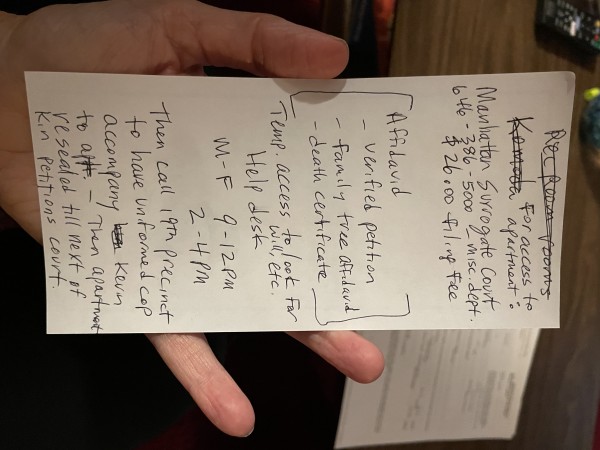 For access to
apartment:
Manhattan Surrogate Court
646-386-5000 misc. dept.
$26.00 filing fee
Affidavid
- verified petition
- family tree affidavid
- death certificate
Temp. access to look for
will, etc.
Help desk
M-F 9-12PM
2-4PM
Then call 19th precinct
to have uniformed cop
accompany Kevin
to apt. - Then apartment
resealed till next of
kin petitions court.